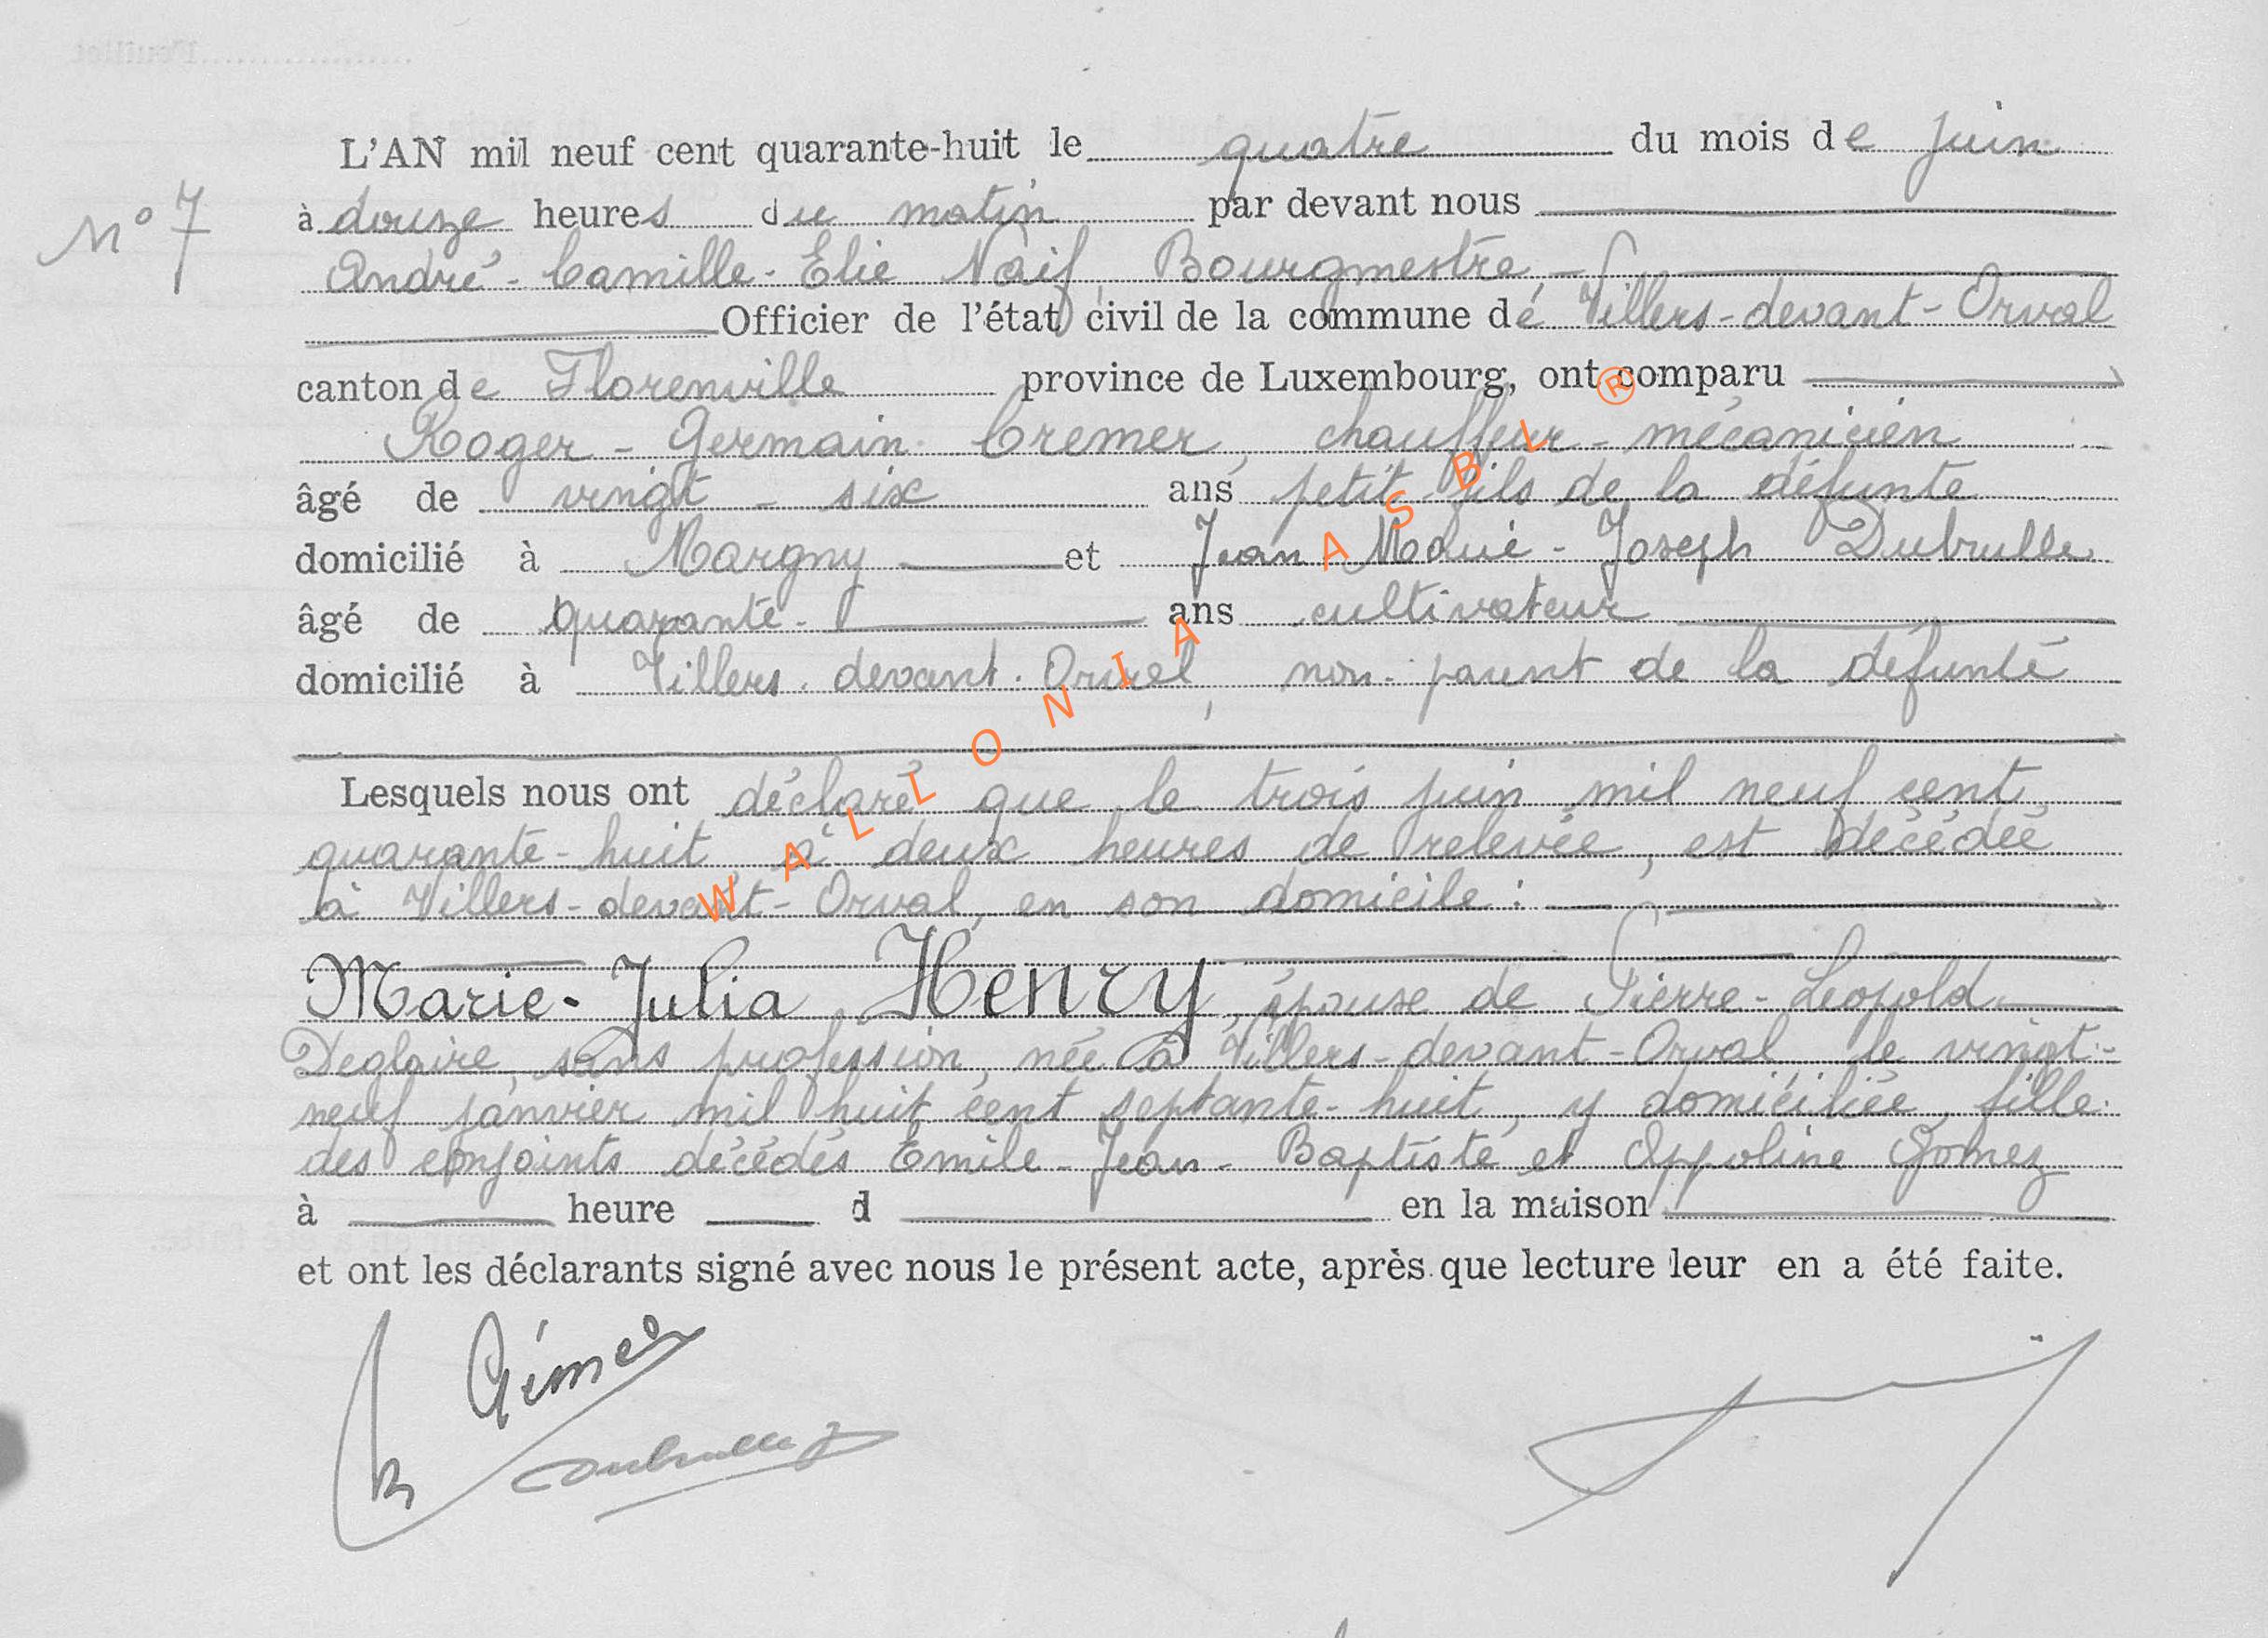 L'AN mil neuf cent quarante-huit le quatre du mois de juin
N° 7
à douze heures du matin par devant nous
André-Camille-Elie Naif, Bourgmestre,
Officier de l'état civil de la commune de Villers-devant-Orval
canton de Florenville province de Luxembourg, ont comparu
Roger-Germain Cremer, chauffeur-mécanicien
âgé de vingt-six ans petit-fils de la défunte
domicilié à Margny et Jean Marie-Joseph Dubrulle
âgé de quarante ans cultivateur
domicilié à Villers-devant-Orval, non-parent de la défunte
Lesquels nous ont déclaré que le trois juin mil neuf cent
quarante-huit, à deux heures de relevée, est décédée
à Villers-devant-Orval, en son domicile :
Marie-Julia Henry, épouse de Pierre-Léopold
Deglaire, sans profession, née à Villers-devant-Orval, le vingt-
neuf janvier mil huit cent septante-huit, y domiciliée, fille
des conjoints décédés Emile-Jean-Baptiste et Appoline Gomez
à heure d en la maison
et ont les déclarants signé avec nous le présent acte, après que lecture leur en a été faite.
Dubrulle J
WALLONIA ASBL ®